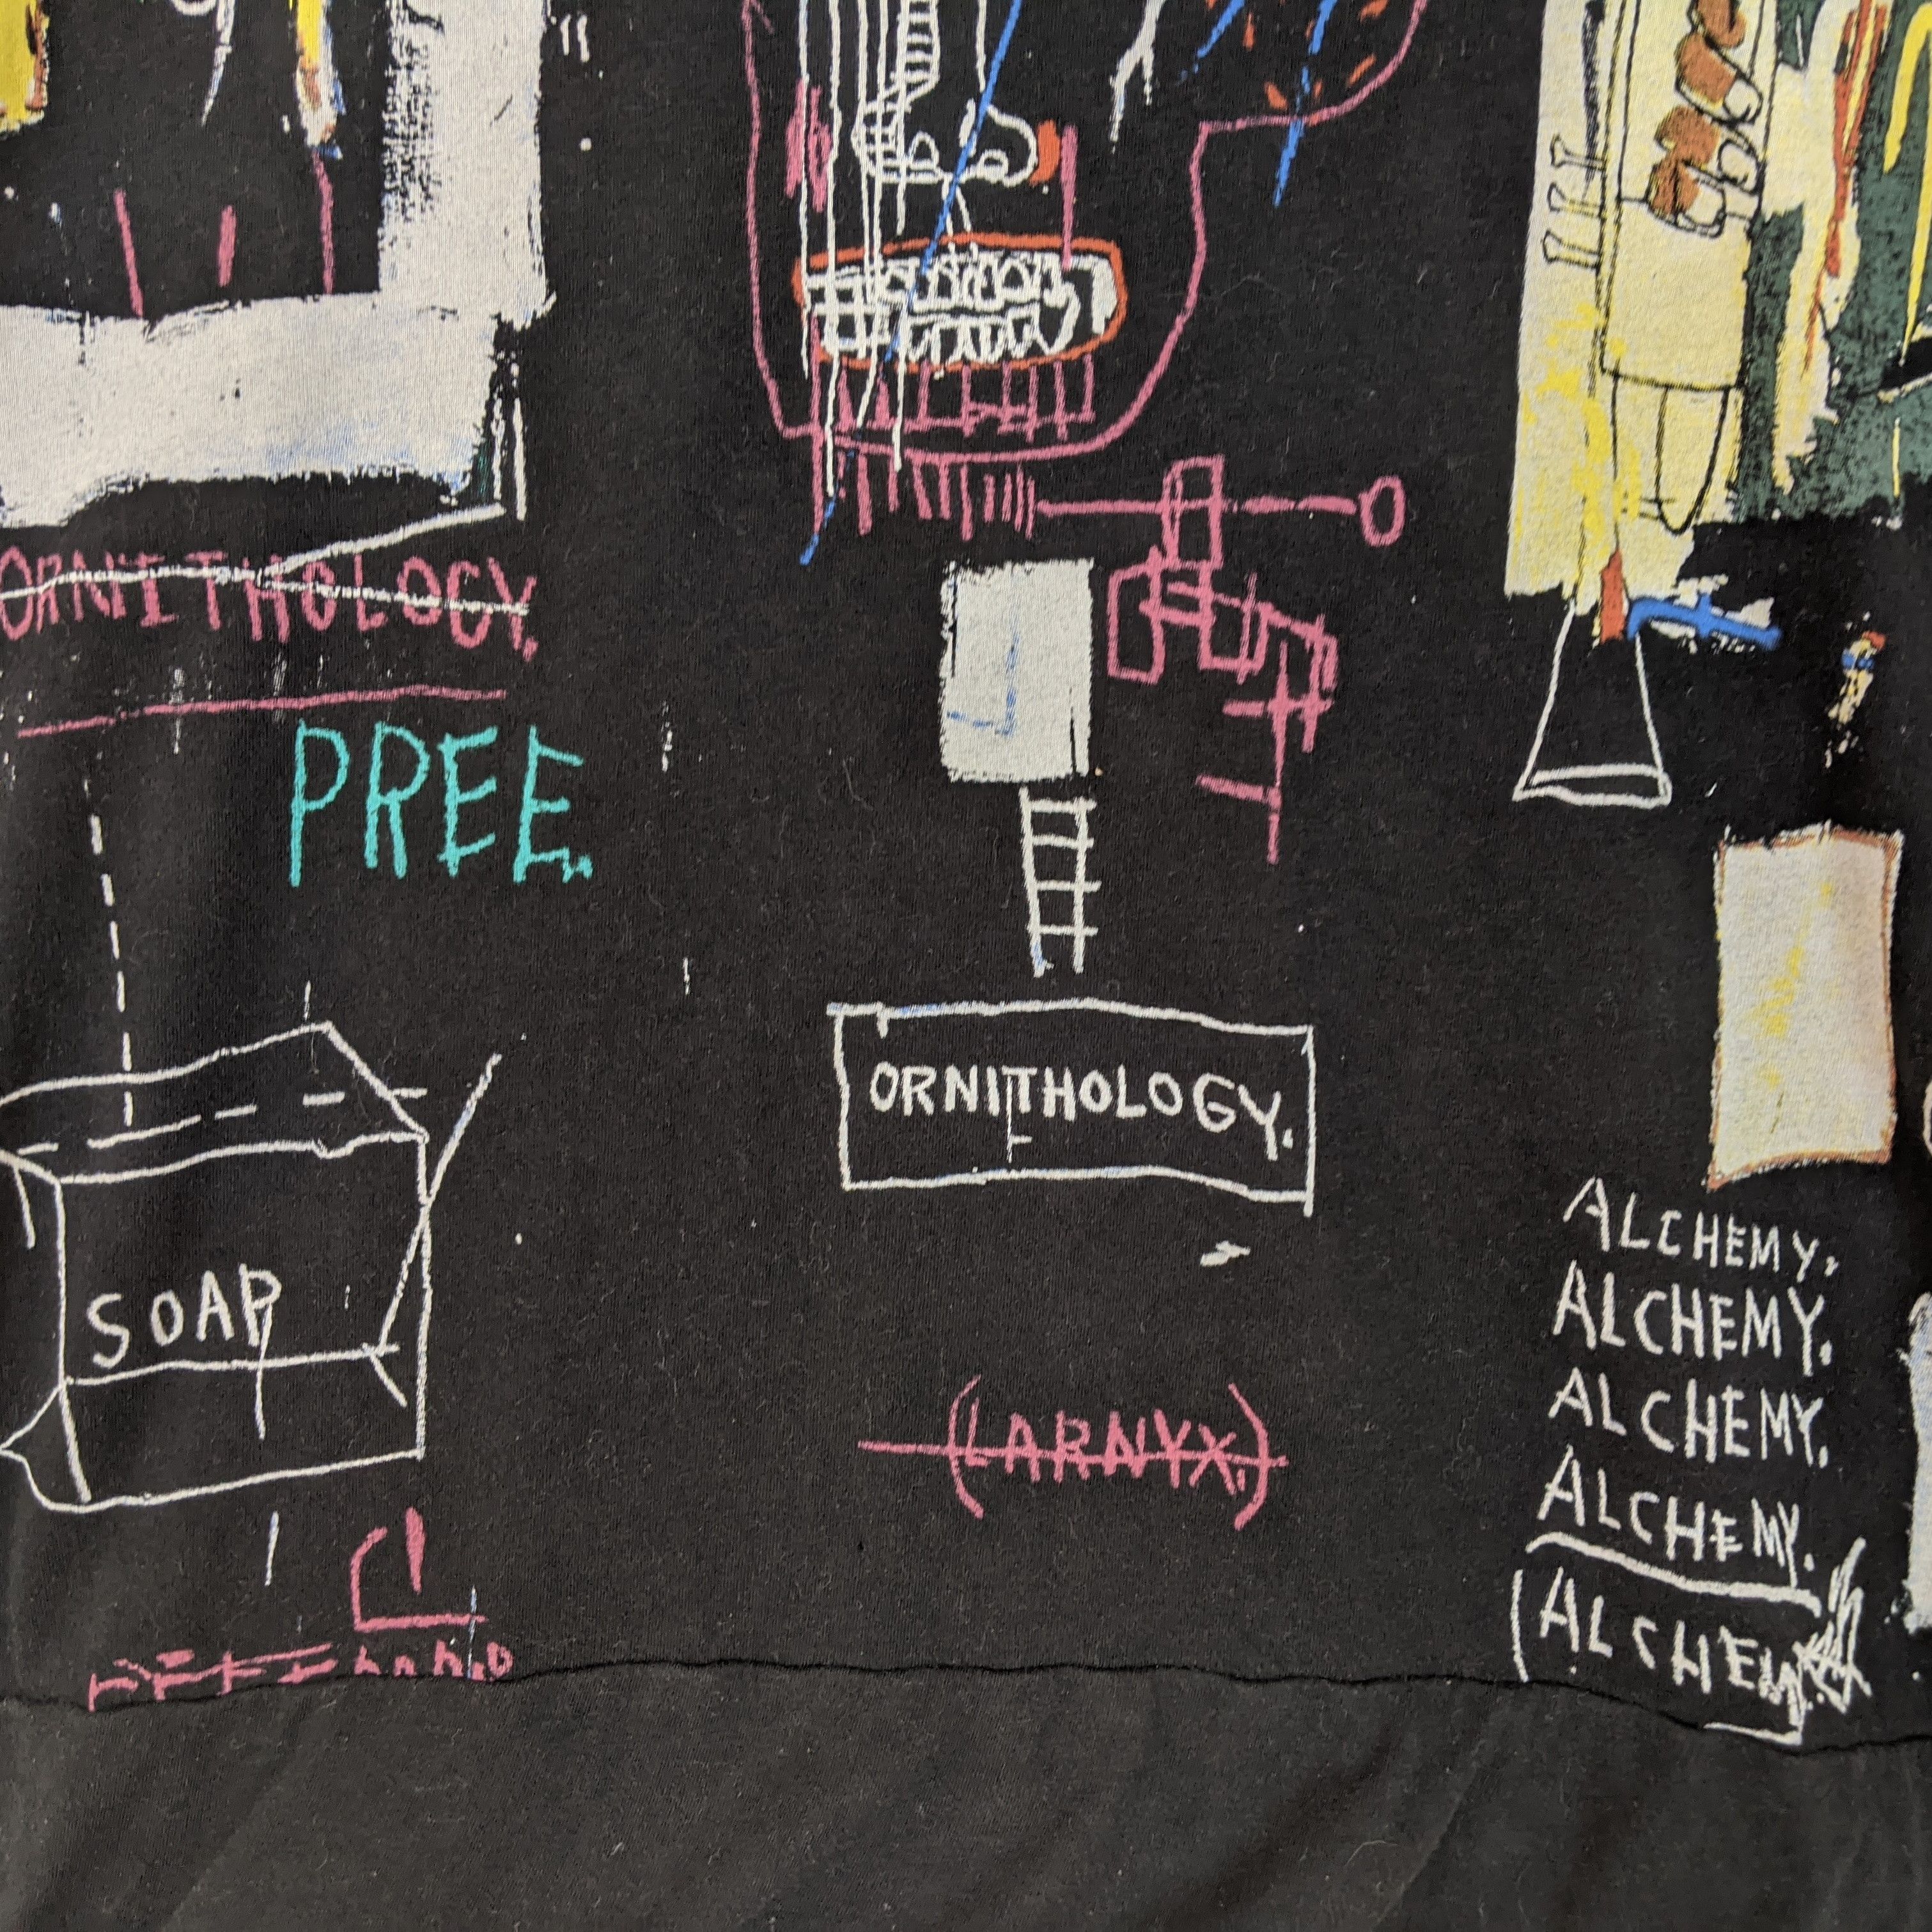 ORNITHOLOGY.
PREE.
SOAP
ORNITHOLOGY.
(LARNYX.)
ALCHEMY.
ALCHEMY.
ALCHEMY.
ALCHEMY.
(ALCHEMY.